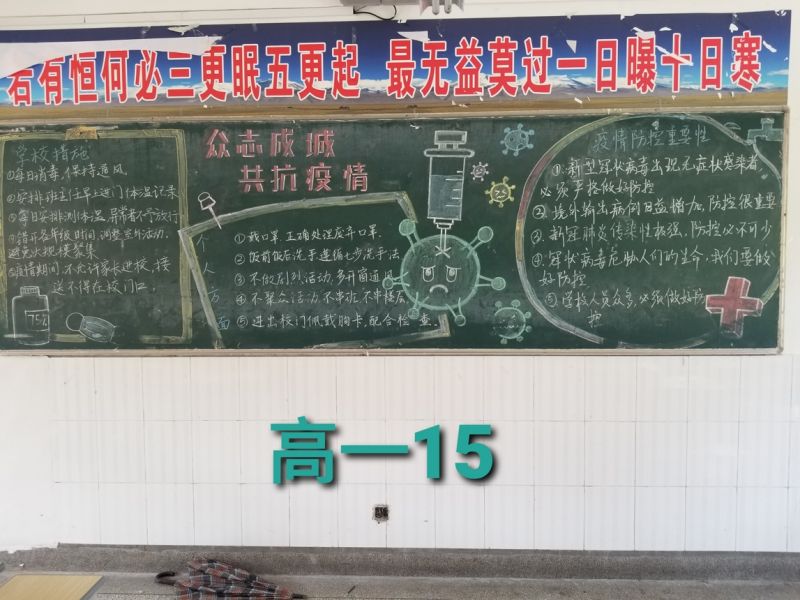 若有恒何必三更眠五更起 最无益莫过一日曝十日寒
学校措施
①每日消毒,保持通风
②安排班主任早上进门体温记录
③每日安排测体温,异常者不予放行
④错开各年级时间,调整室外活动,
避免大规模聚集
⑤疫情期间不允许家长进校,接
送不得在校门口。
75%
众志成城
共抗疫情
个人方面
①戴口罩,正确处理废弃口罩.
②饭前饭后洗手遵循七步洗手法
③不做剧烈活动,多开窗通风
④不聚众活动,不串班,不串楼层
⑤进出校门佩戴胸卡,配合检查.
疫情防控重要性
①新型冠状病毒出现无症状感染者
必须严格做好防控
②境外输出病例日益增加,防控很重要
③新冠肺炎传染性极强,防控必不可少
④冠状病毒危胁人们的生命,我们要做
好防控
⑤学校人员众多,必须做好防
控
高一15